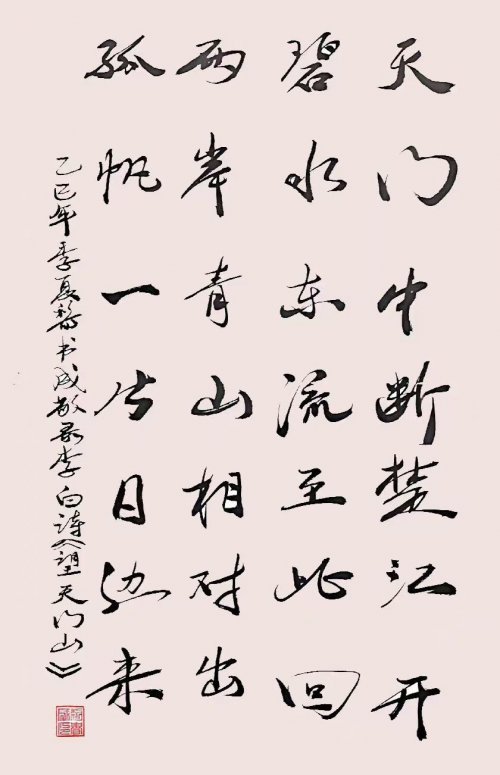 天门中断楚江开
碧水东流至此回
两岸青山相对出
孤帆一片日边来
乙巳年季夏书成敬录李白诗《望天门山》